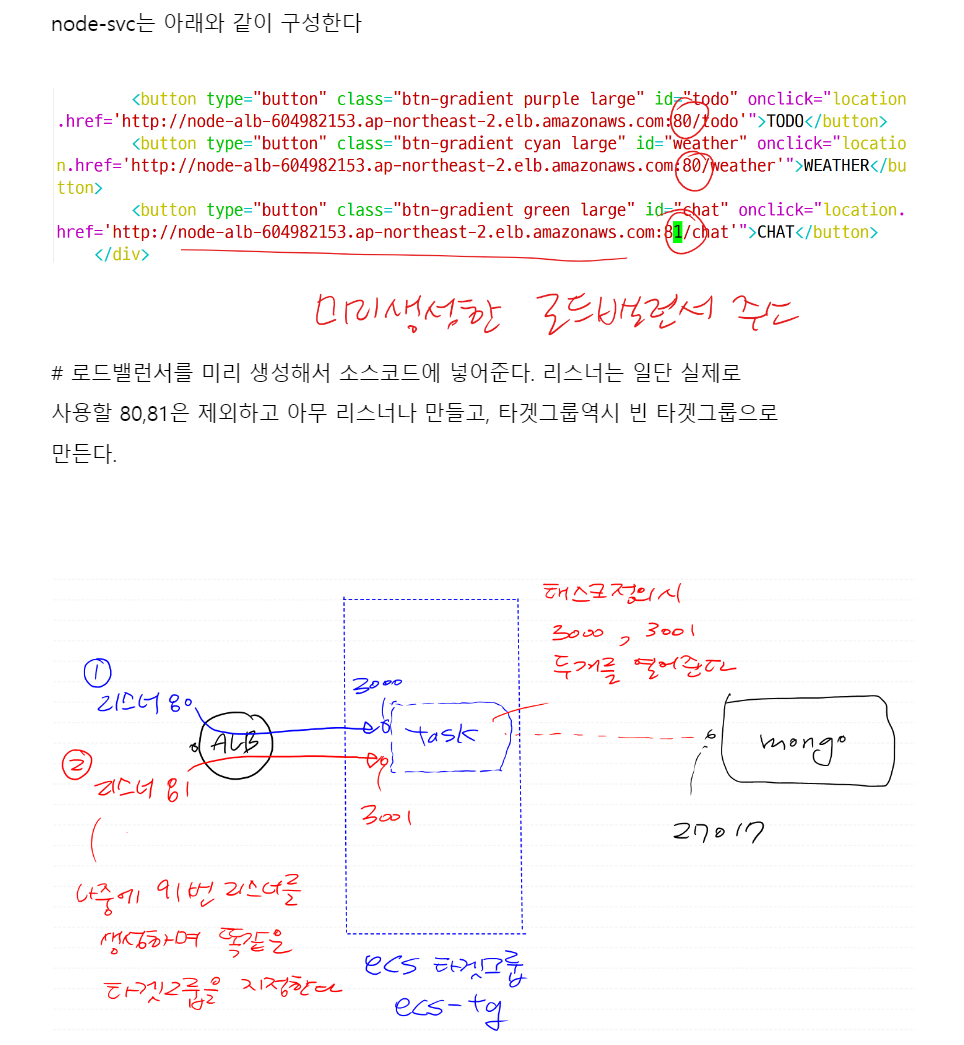 node-svc는 아래와 같이 구성한다
<button type="button" class="btn-gradient purple large" id="todo" onclick="location
.href='http://node-alb-604982153.ap-northeast-2.elb.amazonaws.com:80/todo'">TODO</button>
<button type="button" class="btn-gradient cyan large" id="weather" onclick="locatio
n.href='http://node-alb-604982153.ap-northeast-2.elb.amazonaws.com:80/weather'">WEATHER</bu
tton>
<button type="button" class="btn-gradient green large" id="chat" onclick="location.
href='http://node-alb-604982153.ap-northeast-2.elb.amazonaws.com:81/chat'">CHAT</button>
</div>
미리생성한 로드밸런서 주소
# 로드밸런서를 미리 생성해서 소스코드에 넣어준다. 리스너는 일단 실제로
사용할 80,81은 제외하고 아무 리스너나 만들고, 타겟그룹역시 빈 타겟그룹으로
만든다.
태스크정의시
3000, 3001
두개를 열어준다
①
리스너 80
3000
ALB
task
mongo
②
리스너 81
3001
27017
나중에 91번 리스너를
생성하며 똑같은
타겟그룹을 지정한다
ecs 타겟그룹
ecs-tg